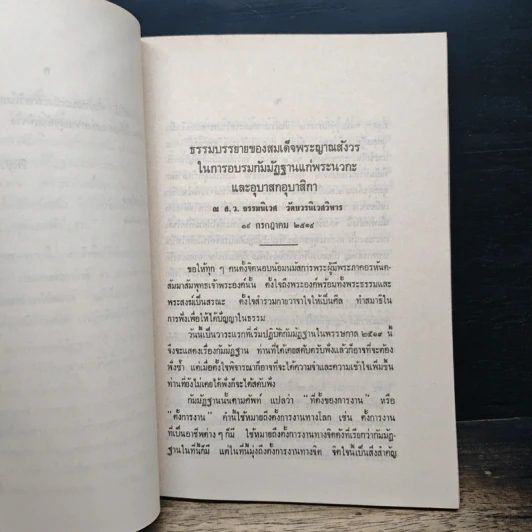 ธรรมบรรยายของสมเด็จพระญาณสังวร
ในการอบรมกัมมัฏฐานแก่พระนวกะ
และอุบาสกอุบาสิกา
ณ ส.ว. ธรรมนิเวศ วัดบวรนิเวศวิหาร
๑๙ กรกฎาคม ๒๕๑๙
ขอให้ทุก ๆ คนตั้งจิตนอบน้อมนมัสการพระผู้มีพระภาคอรหันต-
สัมมาสัมพุทธเจ้าพระองค์นั้น ตั้งใจถึงพระองค์พร้อมทั้งพระธรรมและ
พระสงฆ์เป็นสรณะ ตั้งใจสำรวมกายวาจาใจให้เป็นศีล ทำสมาธิใน
การฟังเพื่อให้ได้ปัญญาในธรรม
วันนี้เป็นวาระแรกที่เริ่มปฏิบัติกัมมัฏฐานในพรรษกาล ๒๕๑๙ นี้
จึงจะแสดงเรื่องกัมมัฏฐาน ท่านที่ได้เคยสดับตรับฟังแล้วก็อาจที่จะต้อง
ฟังซ้ำ แต่เมื่อตั้งใจพิจารณาก็อาจที่จะได้ความจำและความเข้าใจเพิ่มขึ้น
ท่านที่ยังไม่เคยได้ฟังก็จะได้สดับฟัง
กัมมัฏฐานนั้นตามศัพท์ แปลว่า “ที่ตั้งของการงาน” หรือ
“ตั้งการงาน” คำนี้ใช้หมายถึงตั้งการงานทางโลก เช่น ตั้งการงาน
ที่เป็นอาชีพต่าง ๆ ก็มี ใช้หมายถึงตั้งการงานทางจิตดังที่เรียกว่ากัมมัฏ-
ฐานในที่นี้ก็มี แต่ในที่นี้มุ่งถึงตั้งการงานทางจิต จิตใจนี้เป็นสิ่งสำคัญ